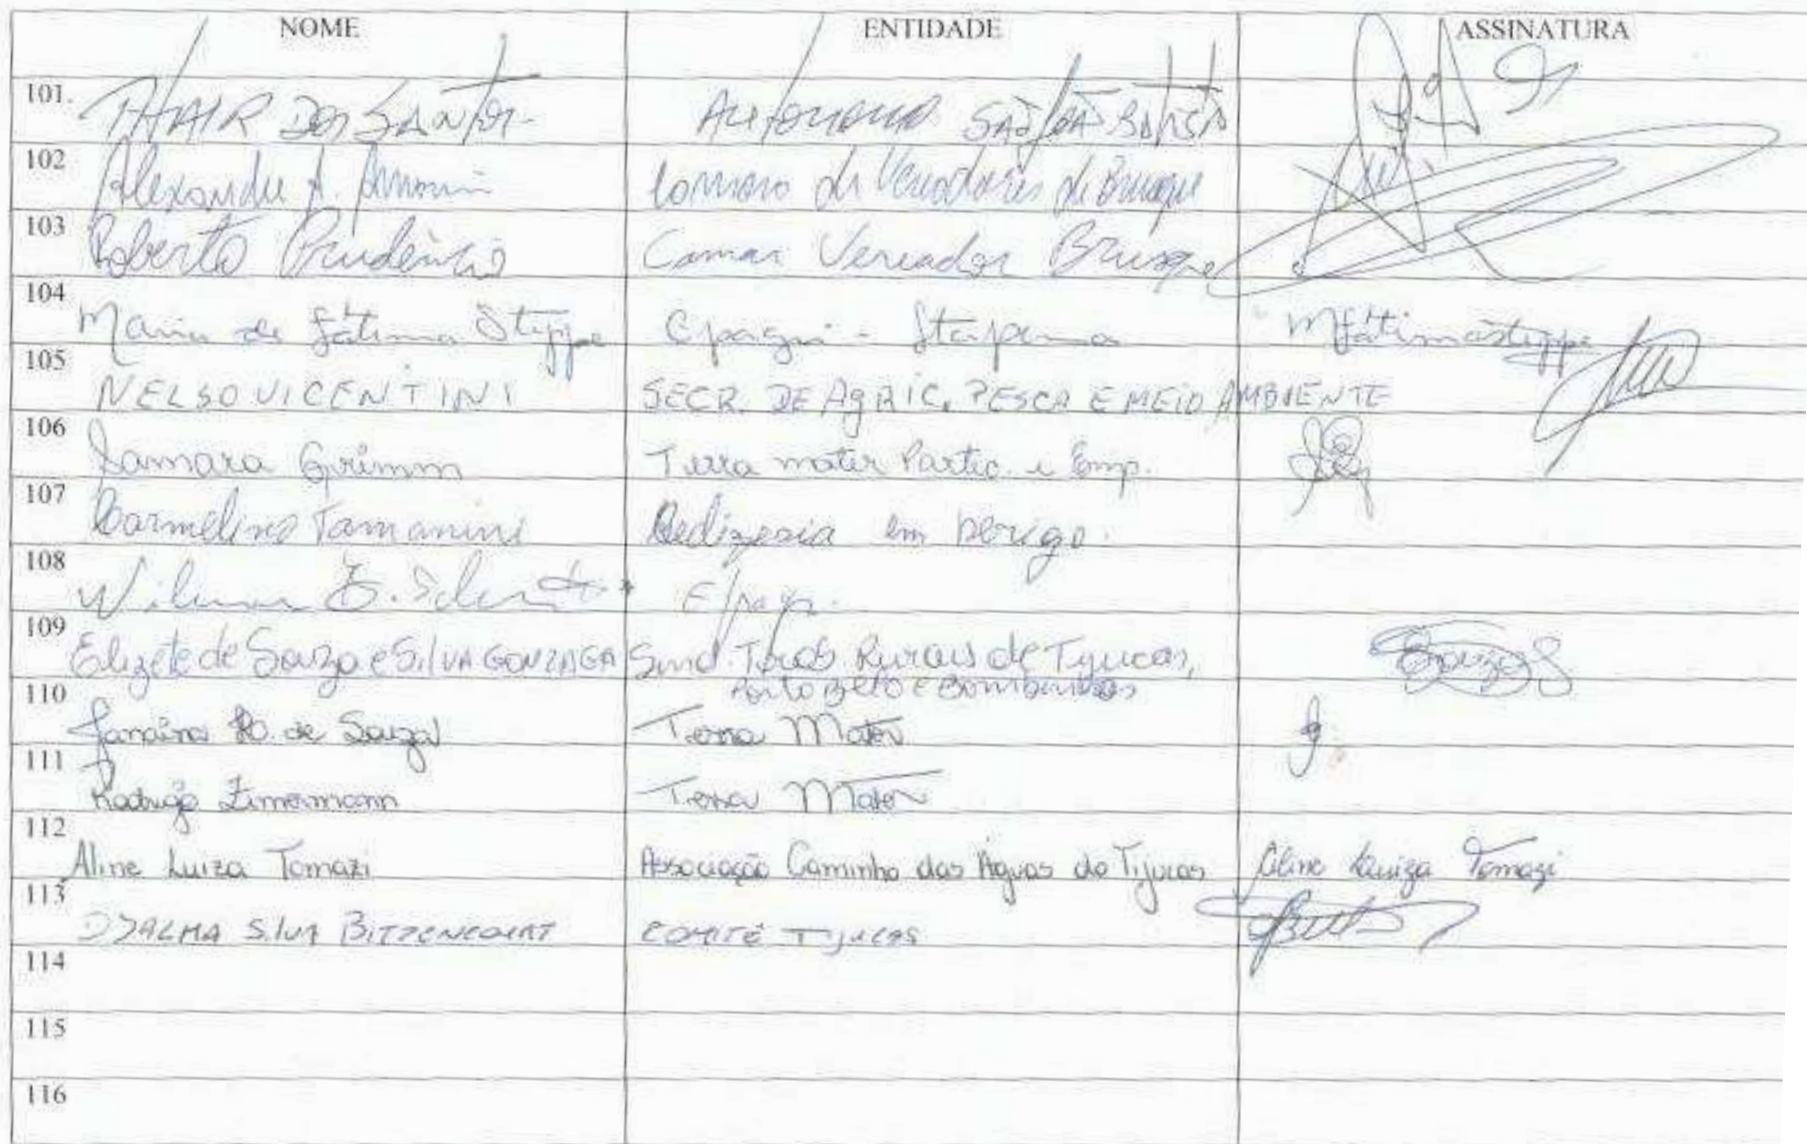 NOME ENTIDADE ASSINATURA
101. DOS SANTOS AUTONOMO SÃO JOÃO BATISTA
102 Alexandre Vereadores de Brusque
103 Roberto Prudêncio Camar Vereador Brusque
104 Maria de Fátima Steppe Epagri - Itapema Mfátimasteppe
105 NELSO VICENTINI SECR. DE AGRIC. PESCA E MEIO AMBIENTE
106 Samara Grimm Terra mater Partic. e Emp.
107 Carmelino Tamanini em perigo.
108 Epagri
109 Elizete de Souza e SILVA GONZAGA Sind. Rurais de Tijucas,
Porto Belo e Bombinhas
110 Janaina de Souza Terra Mater
111 Rodrigo Zimermann Terra Mater
112 Aline Luiza Tomazi Associação Caminho das Águas do Tijucas Aline Luiza Tomazi
113 DJALMA SILVA BITTENCOURT COMITÊ TIJUCAS
114
115
116